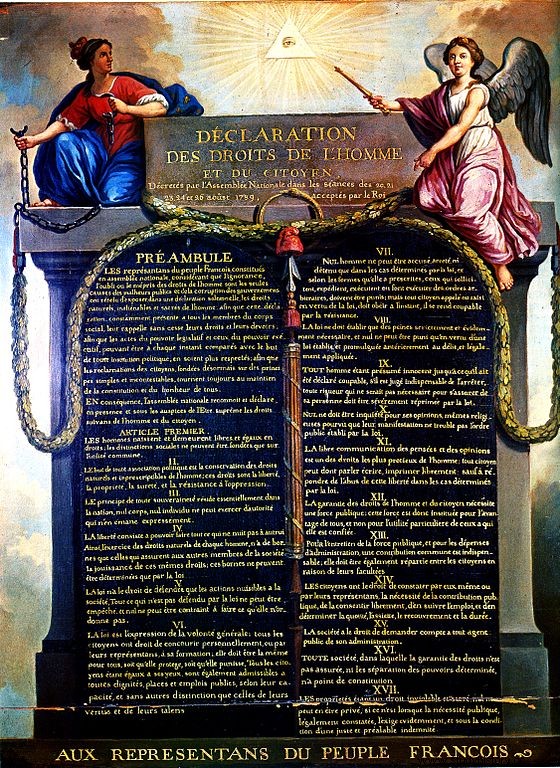 DÉCLARATION
DES DROITS DE L'HOMME
ET DU CITOYEN,
Décretés par l'Assemblée Nationale dans les séances des 20, 21
23, 24 et 26 août 1789, acceptés par le Roi
PRÉAMBULE
LES représentans du peuple Francois constitués
en assemblée nationale, considérant que l'ignorance,
l'oubli ou le mépris des droits de l'homme sont les seules
causes des malheurs publics et de la corruption des gouvernemens
ont résolu d'exposer dans une déclaration solemnelle, les droits
naturels, inaliénables et sacrés de l'homme: afin que cette décla
ration, constamment présente a tous les membres du corps
social, leur rappelle sans cesse leurs droits et leurs devoirs,
afin que les actes du pouvoir législatif et ceux du pouvoir exé
cutif, pouvant être a chaque instant comparés avec le but
de toute institution politique, en soient plus respectés; afin que
les reclamations des citoyens, fondées désormais sur des princi
pes simples et incontestables, tournent toujours au maintien
de la constitution et du bonheur de tous.
EN conséquence, l'assemblée nationale reconnoit et déclare,
en presence et sous les auspices de l'Etre suprême les droits
suivans de l'homme et du citoyen.
ARTICLE PREMIER.
LES hommes naissent et demeurent libres et égaux en
droits; les distinctions sociales ne peuvent être fondées que sur
l'utilité commune.
II.
LE but de toute association politique est la conservation des droits
naturels et imprescriptibles de l'homme; ces droits sont la liberté,
la propriété, la sureté, et la résistance à l'oppression.
III.
LE principe de toute souveraineté réside essentiellement dans
la nation, nul corps, nul individu ne peut exercer d'autorité
qui n'en émane expressement.
IV.
LA liberté consiste a pouvoir faire tout ce qui ne nuit pas à autrui
Ainsi, l'exercice des droits naturels de chaque homme, n'a de bor-
nes que celles qui assurent aux autres membres de la société
la jouissance de ces mêmes droits; ces bornes ne peuvent
être déterminées que par la loi
V.
LA loi n'a le droit de défendre que les actions nuisibles a la
société. Tout ce qui n'est pas défendu par la loi ne peut être
empêché, et nul ne peut être contraint à faire ce qu'elle n'or-
donne pas.
VI.
LA loi est l'expression de la volonté générale; tous les
citoyens ont droit de concourir personnellement, ou par
leurs représentans, à sa formation; elle doit être la même
pour tous, soit qu'elle protege, soit qu'elle punisse, Tous les cito
yens étant égaux a ses yeux, sont également admissibles a
toutes dignités, places et emplois publics, selon leur ca-
pacité, et sans autres distinction que celles de leurs
vertus et de leurs talens
VII.
NUL homme ne peut être accusé, arreté, ni
détenu que dans les cas déterminés par la loi, et
selon les formes qu'elle a prescrites, ceux qui sollici-
tent, expédient, exécutent ou font exécuter des ordres ar-
bitraires, doivent être punis; mais tout citoyen appelé ou saisi
en vertu de la loi, doit obéir a l'instant, il se rend coupable
par la résistance.
VIII.
LA loi ne doit établir que des peines strictement et évidem-
ment nécessaire, et nul ne peut être puni qu'en vertu d'une
loi établie, et promulguée antérieurement au délit, et légale-
ment appliquée.
IX.
TOUT homme étant présumé innocent jusqu'a ce qu'il ait
été déclaré coupable, s'il est jugé indispensable de l'arrêter,
toute rigueur qui ne serait pas nécessaire pour s'assurer de
sa personne doit être sévèrement réprimée par la loi.
X.
NUL ne doit être inquiété pour ses opinions, mêmes religi-
euses pourvu que leur manifestation ne trouble pas l'ordre
public établi par la loi.
XI.
LA libre communication des pensées et des opinions
est un des droits les plus precieux de l'homme; tout citoyen
peut donc parler écrire, imprimer librement: sauf a ré-
pondre de l'abus de cette liberté dans les cas déterminés
par la loi.
XII.
LA garantie des droits de l'homme et du citoyen nécessite
une force publique; cette force est donc instituée pour l'avan-
tage de tous, et non pour l'utilité particuliere de ceux a qui
elle est confiée.
XIII.
Pour l'entretien de la force publique, et pour les dépenses
d'administration, une contribution commune est indispen-
sable; elle doit être également répartie entre les citoyens en
raison de leurs facultées.
XIV.
LES citoyens ont le droit de constater par eux même ou
par leurs représentans, la nécessité de la contribution pub-
lique, de la consentir librement, d'en suivre l'emploi, et d'en
déterminer la quotité, l'assiette, le recouvrement et la durée.
XV.
LA société a le droit de demander compte a tout agent
public de son administration.
XVI.
TOUTE société, dans laquelle la garantie des droits n'est
pas assurée, ni les séparation des pouvoirs déterminée,
n'a point de constitution.
XVII.
LES propriétés étant un droit inviolable et sacré, nul ne
peut en être privé, si ce n'est lorsque la nécessité publique,
légalement constatée, l'exige évidemment, et sous la condi-
tion d'une juste et préalable indemnité.
AUX REPRESENTANS DU PEUPLE FRANCOIS